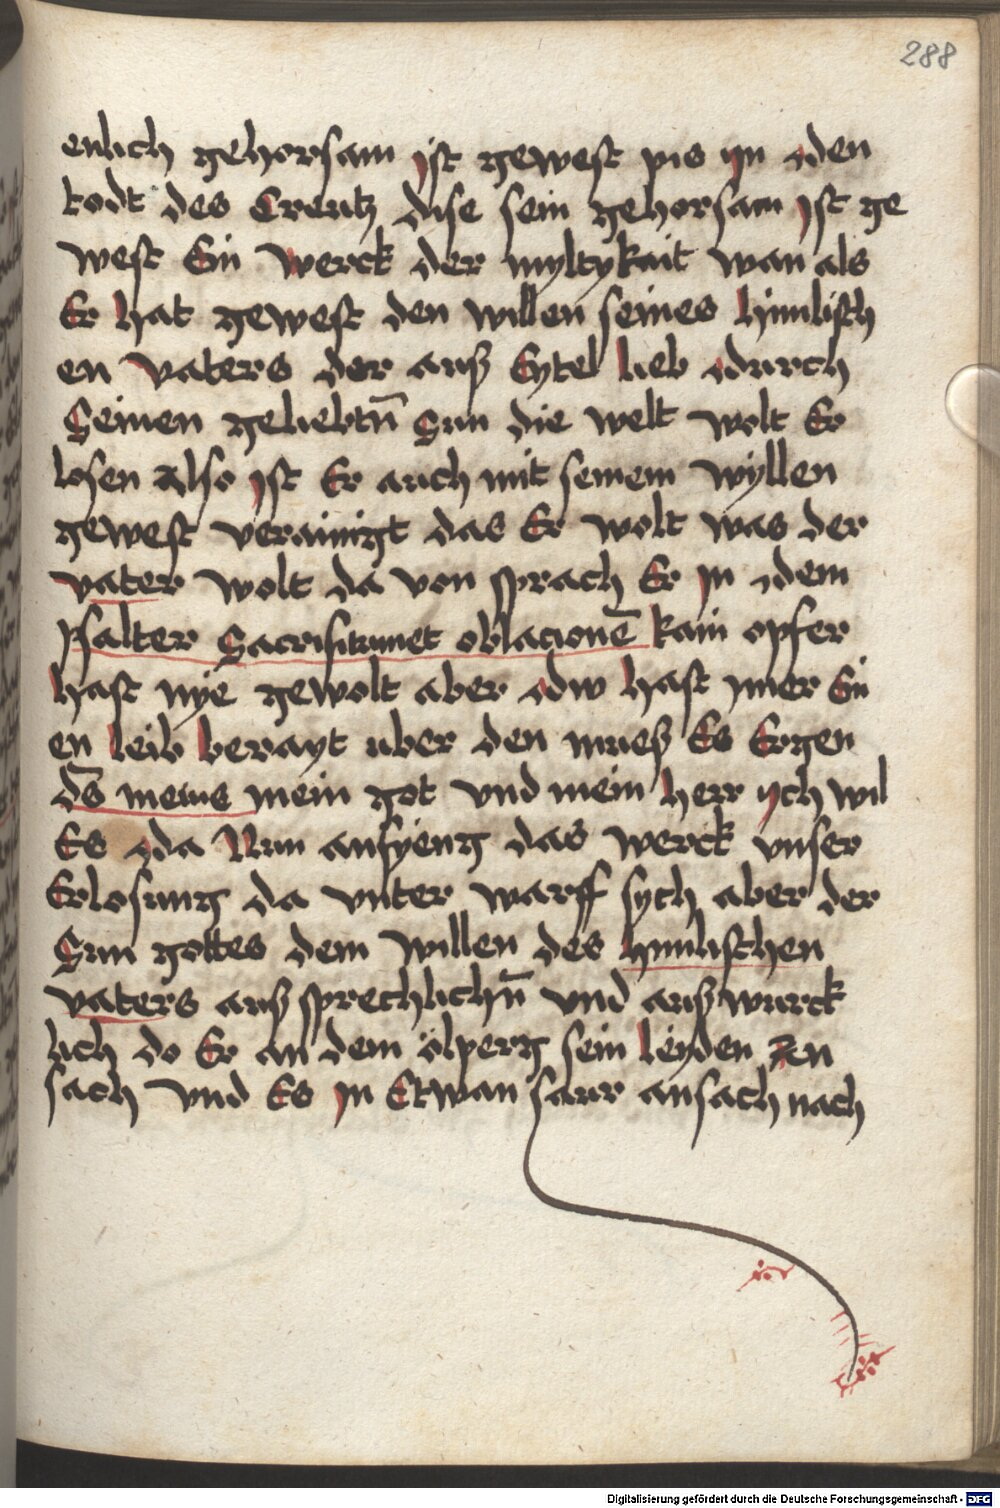 288
enlich gehorsam ist gewest pis yn den
todt des Creutz dise sein gehorsam ist ge
west Ein werck der myltykait wan als
Er hat gewest den willen seines himlisch
en vaters der auß Eytel lieb durch
Seinen geliebtn̄ Sun die welt wolt Er
losen Also ist Er auch mit seinem wyllen
gewest verainigt das Er wolt was der
vater wolt da von sprach Er in dem
psalter Sacrifitium et oblacionē kain opfer
hast nye gewolt aber dw hast mier Ein
en leib berayt uber den mueß Es Ergen
dē meus mein got vnd mein herr ych wil
Es da Nun anfyeng das werck vnser
Erlosung da vnter warff sych aber der
Sun gottes dem willen des himlischen
vaters auß sprechlichn̄ vnd auß wurck
lich do Er an dem ölperg sein leyden An
sach vnd Es in Etwan saur ansach nach
Digitalisierung gefördert durch die Deutsche Forschungsgemeinschaft - DFG